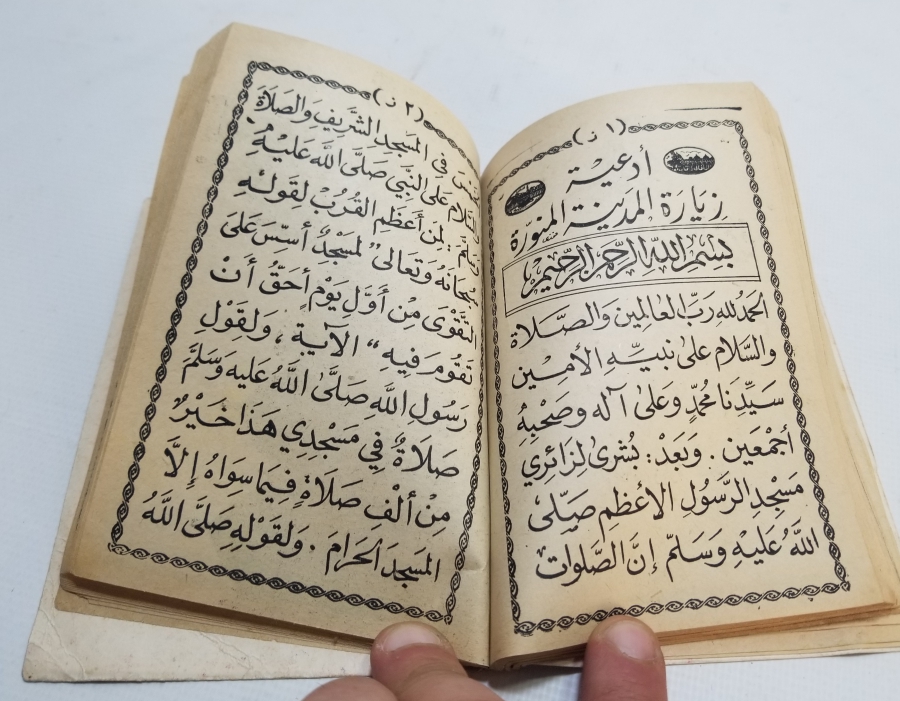 (١ ز)
أدعية
زيارة المدينة المنورة
بِسْمِ اللهِ الرَّحْمنِ الرَّحِيمِ
الحَمْدُ للهِ رَبِّ العَالمِينَ وَالصَّلاة
والسَّلام على نبيِّهِ الأمين
سَيِّدِنَا محمَّدٍ وَعَلىٰ آله وَصَحْبِهِ
أجمْعَين . وَبَعْدْ : بُشرىٰ لِزَائِرِي
مَسْجِد الرَّسُولِ الأعظمِ صَلّىٰ
اللهُ عَليْهِ وَسَلمّ إنَّ الصَّلوات
(٢ ز)
في المَسْجِدِ الشَّرِيفِ وَالصَلَاة
عَلى النَّبِي صَلَّى الله عَليْهِ
لمِنْ أعَظمِ القُرُبْ لِقَولهِ
وَتَعَالىٰ " لَمسْجِدٌ أسِّسَ عَلىٰ
التَّقْوَى مِنْ أوَّلِ يَوْمٍ أحَقُ أنْ
تَقُومَ فَيِهِ " الآية ، وَلِقَوْلِ
رَسُولِ اللهِ صَلَّىٰ اللهُ عَليه وَسَلمَّ
صَلاةٌ في مَسْجِدِي هَذَا خَيْرٌ
مِنْ ألْفِ صَلاةٍ فِيمَا سِوَاهُ إلاَّ
المسَجِدَ الحَرامَ . وَلقوْلِهِ صَلَّى اللهُ